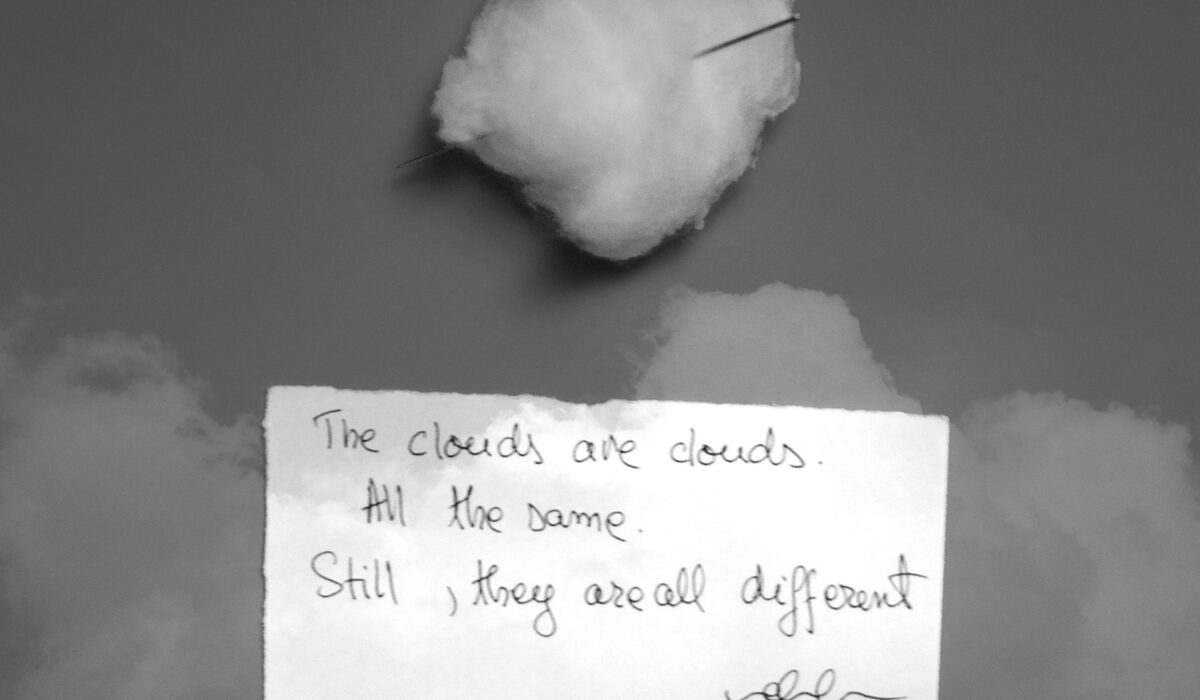 The clouds are clouds.
All the same.
Still , they are all different